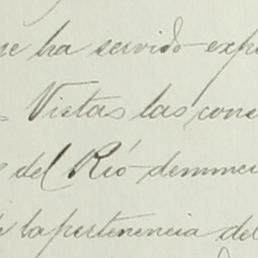 ha servido
= Vistas las
del Rio denuncia
la pertenencia del